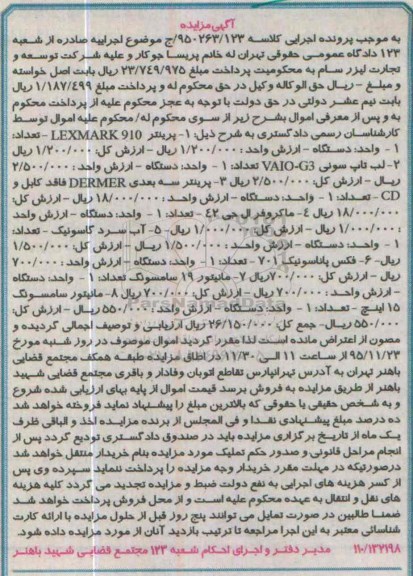 آگهی مزایده
به موجب پرونده اجرایی کلاسه ۹۵۰۲۶۳/۱۲۳/ج موضوع اجراییه صادره از شعبه
۱۲۳ دادگاه عمومی حقوقی تهران له خانم پریسا جوکار و علیه شرکت توسعه و
تجارت لیزر سام به محکومیت پرداخت مبلغ ۲۳/۷۴۹/۹۷۵ ریال بابت اصل خواسته
و مبلغ - ریال حق الوکاله وکیل در حق محکوم له و پرداخت مبلغ ۱/۱۸۷/۴۹۹ ریال
بابت نیم عشر دولتی در حق دولت با توجه به عجز محکوم علیه از پرداخت محکوم
به و پس از معرفی اموال بشرح زیر از سوی محکوم له/ محکوم علیه اموال توسط
کارشناسان رسمی دادگستری به شرح ذیل: ۱- پرینتر LEXMARK 910 - تعداد:
۱ - واحد: دستگاه - ارزش واحد: ۱/۲۰۰/۰۰۰ ریال - ارزش کل: ۱/۲۰۰/۰۰۰ ریال
۲- لپ تاپ سونی VAIO-G3 تعداد: ۱ - واحد: دستگاه - ارزش واحد: ۲/۵۰۰/۰۰۰
ریال - ارزش کل: ۲/۵۰۰/۰۰۰ ریال ۳- پرینتر سه بعدی DERMER فاقد کابل و
CD - تعداد: ۱ - واحد: دستگاه - ارزش واحد: ۱۸/۰۰۰/۰۰۰ ریال - ارزش کل:
۱۸/۰۰۰/۰۰۰ ریال ۴- ماکروفر ال جی ۴۲ - تعداد: ۱ - واحد: دستگاه - ارزش واحد
: ۱/۰۰۰/۰۰۰ ریال - ارزش کل: ۱/۰۰۰/۰۰۰ ریال- ۵- آب سرد کاسونیک - تعداد:
۱ - واحد: دستگاه - ارزش واحد: ۱/۵۰۰/۰۰۰ ریال - ارزش کل: ۱/۵۰۰/۰۰۰
ریال- ۶- فکس پاناسونیک ۷۰۱ - تعداد: ۱ - واحد: دستگاه - ارزش واحد: ۷۰۰/۰۰۰
ریال - ارزش کل: ۷۰۰/۰۰۰ ریال ۷- مانیتور ۱۹ سامسونگ تعداد: ۱ - واحد: دستگاه
- ارزش واحد: ۷۰۰/۰۰۰ ریال - ارزش کل: ۷۰۰/۰۰۰ ریال ۸- مانیتور سامسونگ
۱۵ اینچ - تعداد: ۱ - واحد: دستگاه - ارزش واحد: ۵۵۰/۰۰۰ ریال - ارزش کل:
۵۵۰/۰۰۰ ریال- جمع کل: ۲۶/۱۵۰/۰۰۰ ریال ارزیابی و توصیف اجمالی گردیده و
مصون از اعتراض مانده است لذا مقرر گردید اموال موصوف در روز شنبه مورخ
۹۵/۱۱/۲۳ از ساعت ۱۱ الی ۱۱/۳۰ در اطاق مزایده طبقه همکف مجتمع قضایی
باهنر تهران به آدرس تهرانپارس تقاطع اتوبان وفادار و باقری مجتمع قضایی شهید
باهنر از طریق مزایده به فروش برسد قیمت اموال از پایه بهای ارزیابی شده شروع
و به شخص حقیقی یا حقوقی که بالاترین مبلغ را پیشنهاد نماید فروخته خواهد شد
ده درصد مبلغ پیشنهادی نقدا و فی المجلس از برنده مزایده اخذ و الباقی ظرف
یک ماه از تاریخ برگزاری مزایده باید در صندوق دادگستری تودیع گردد پس از
انجام مراحل قانونی و صدور حکم تملیک مورد مزایده بنام خریدار منتقل خواهد شد
درصورتیکه در مهلت مقرر خریدار وجه مزایده را پرداخت ننماید سپرده وی پس
از کسر هزینه های اجرایی به نفع دولت ضبط و مزایده تجدید می گردد کلیه هزینه
های نقل و انتقال به عهده محکوم علیه است و از محل فروش پرداخت خواهد شد
ضمنا طالبین در صورت تمایل می توانند پنج روز قبل از حلول مزایده با ارائه کارت
شناسائی معتبر به این اجرا مراجعه تا ترتیب بازدید آنان از مورد مزایده داده شود.
۱۱۰/۱۳۲۱۹۸ مدیر دفتر و اجرای احکام شعبه ۱۲۳ مجتمع قضایی شهید باهنر